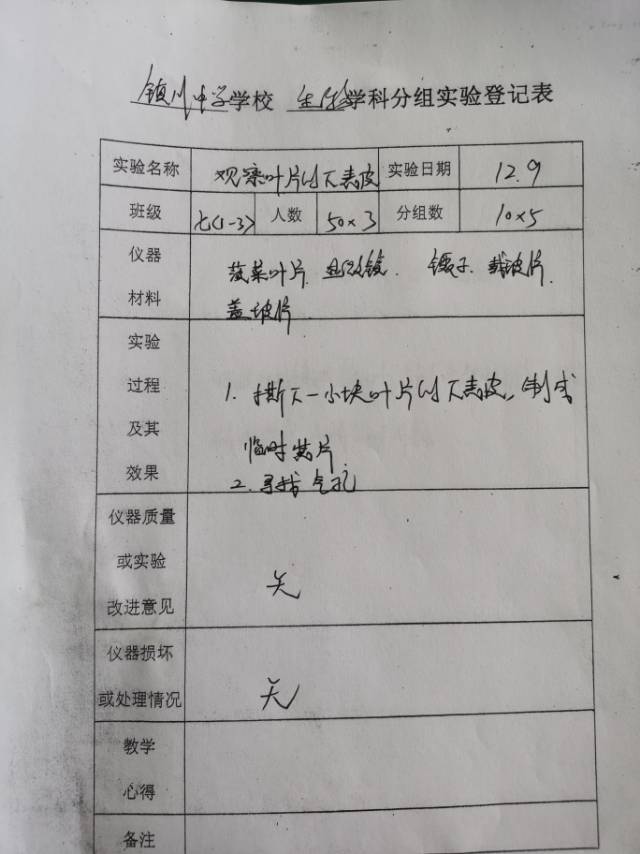 镇川中学学校 生物学科分组实验登记表
实验名称 观察叶片的下表皮 实验日期 12.9
班级 七(1-3) 人数 50×3 分组数 10×5
仪器
材料
菠菜叶片. 显微镜. 镊子. 载玻片.
盖玻片.
实验
过程
及其
效果
1. 撕下一小块叶片的下表皮, 制成
临时装片.
2. 寻找气孔
仪器质量
或实验
改进意见
无
仪器损坏
或处理情况
无
教学
心得
备注